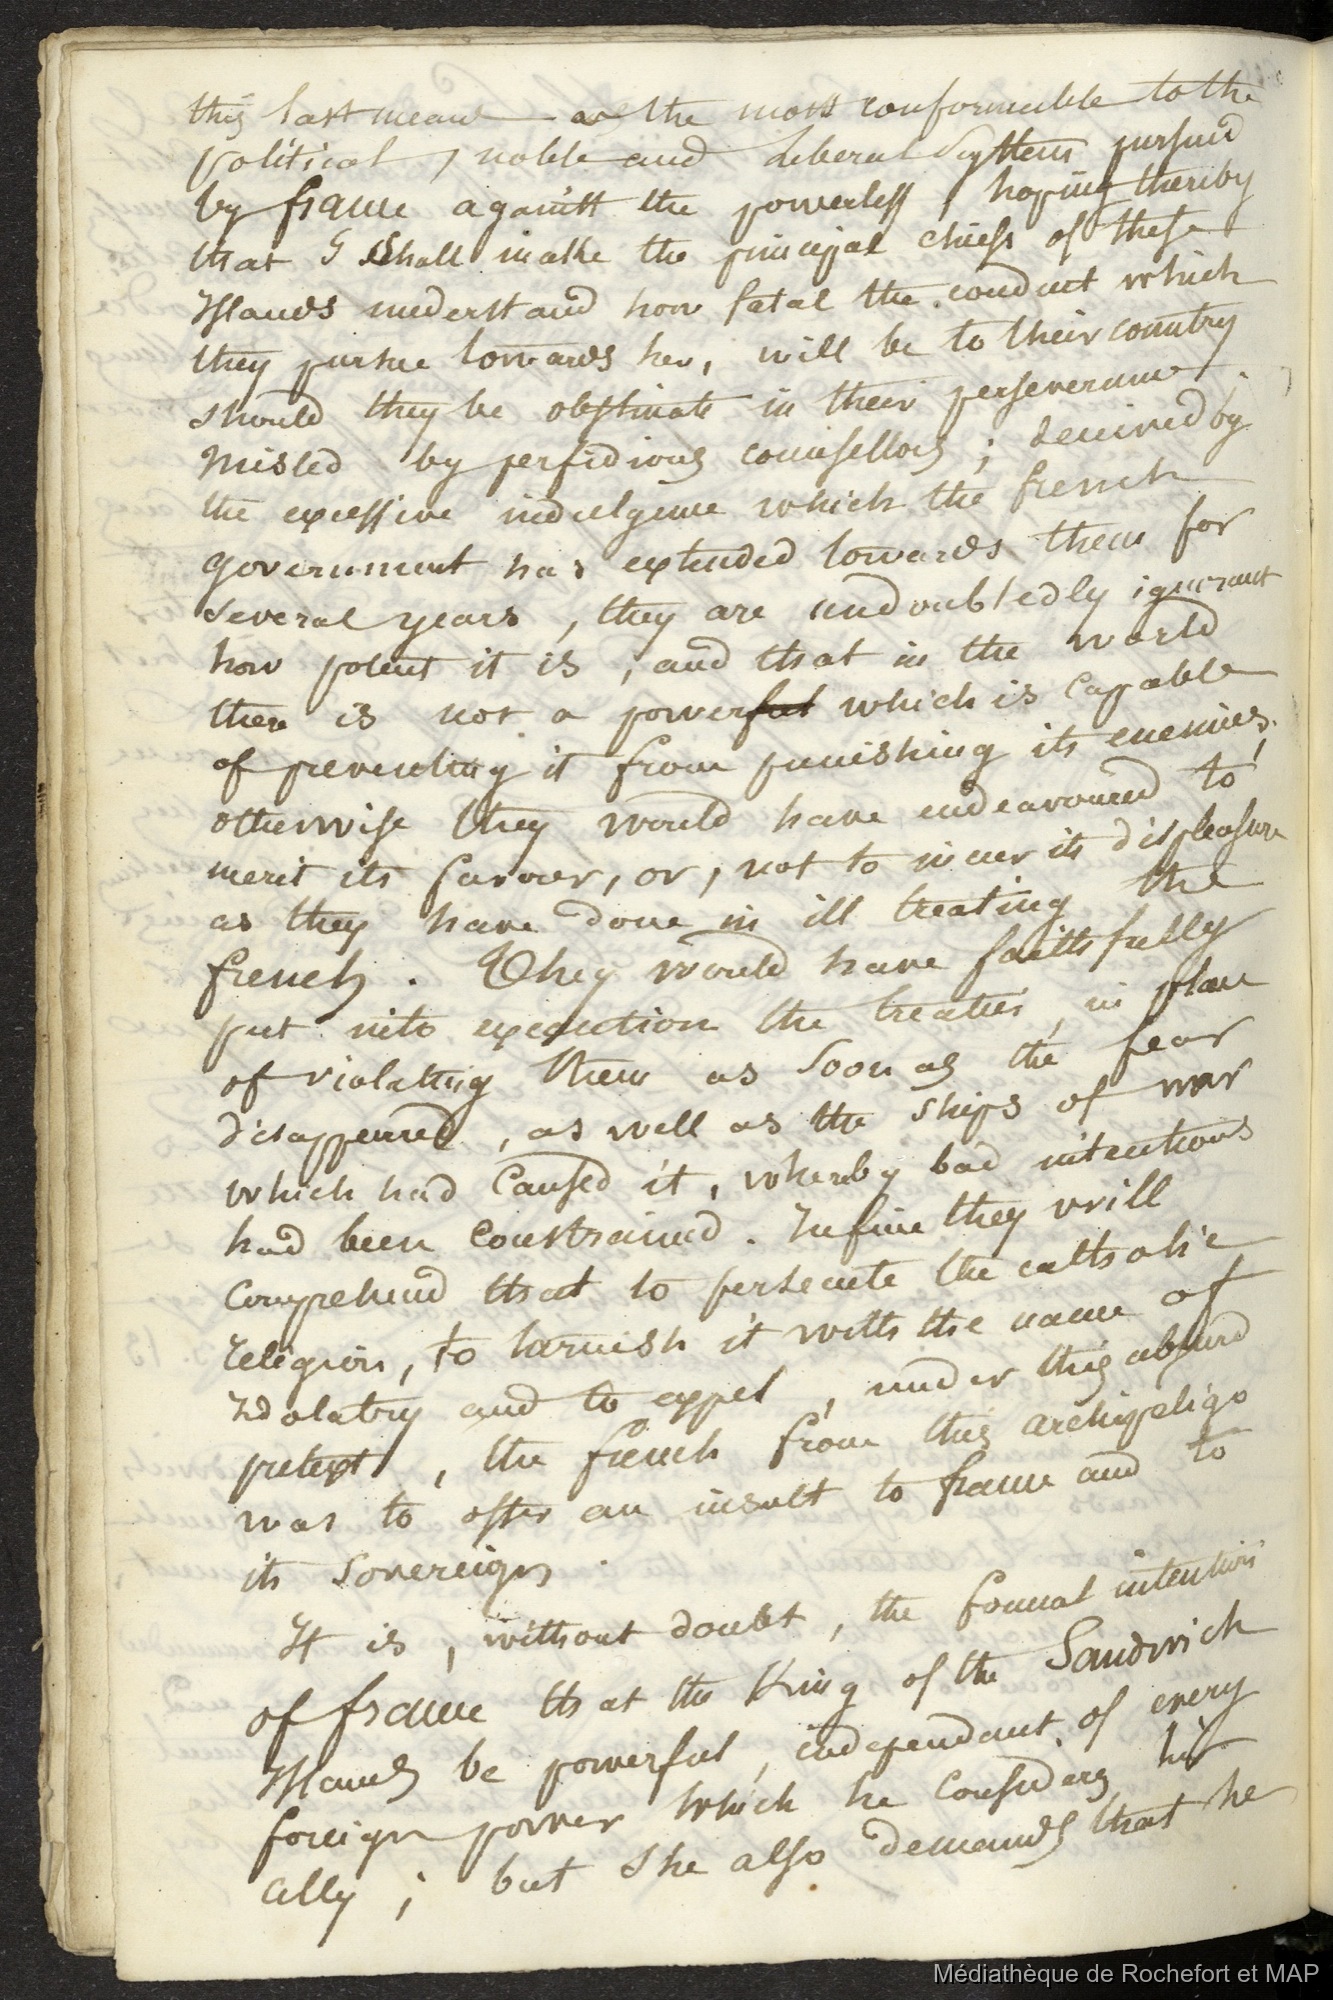 this last means as the most conformable to the
political, noble and liberal System pursued
by france against the powerless, hoping thereby
that I Shall make the principal chiefs of these
Islands understand how fatal the conduct which
they pursue towards her, will be to their country
should they be obstinate in their perseverance.
Misled by perfidious counsellors; deceived by
the excessive indulgence which the french
government has extended towards them for
several years, they are undoubtedly ignorant
how potent it is, and that in the world
there is not a powerful which is capable
of preventing it from punishing its enemies,
otherwise they would have endeavoured to
merit its favour, or, not to incur its displeasure
as they have done in ill treating the
french. They would have faithfully
put into execution the treaties, in place
of violating them as soon as the fear
disappeared, as well as the ships of war
which had caused it, whereby bad intentions
had been constrained. In fine they will
comprehend that to persecute the catholic
religion, to tarnish it with the name of
idolatry and to expel, under this absurd
pretext, the french from this archipeligo
was to offer an insult to france and to
its Sovereign.
It is, without doubt, the formal intention
of france that the King of the Sandwich
Islands be powerful, independant of every
foreign power which he considers his
ally; but she also demands that he
Médiathèque de Rochefort et MAP